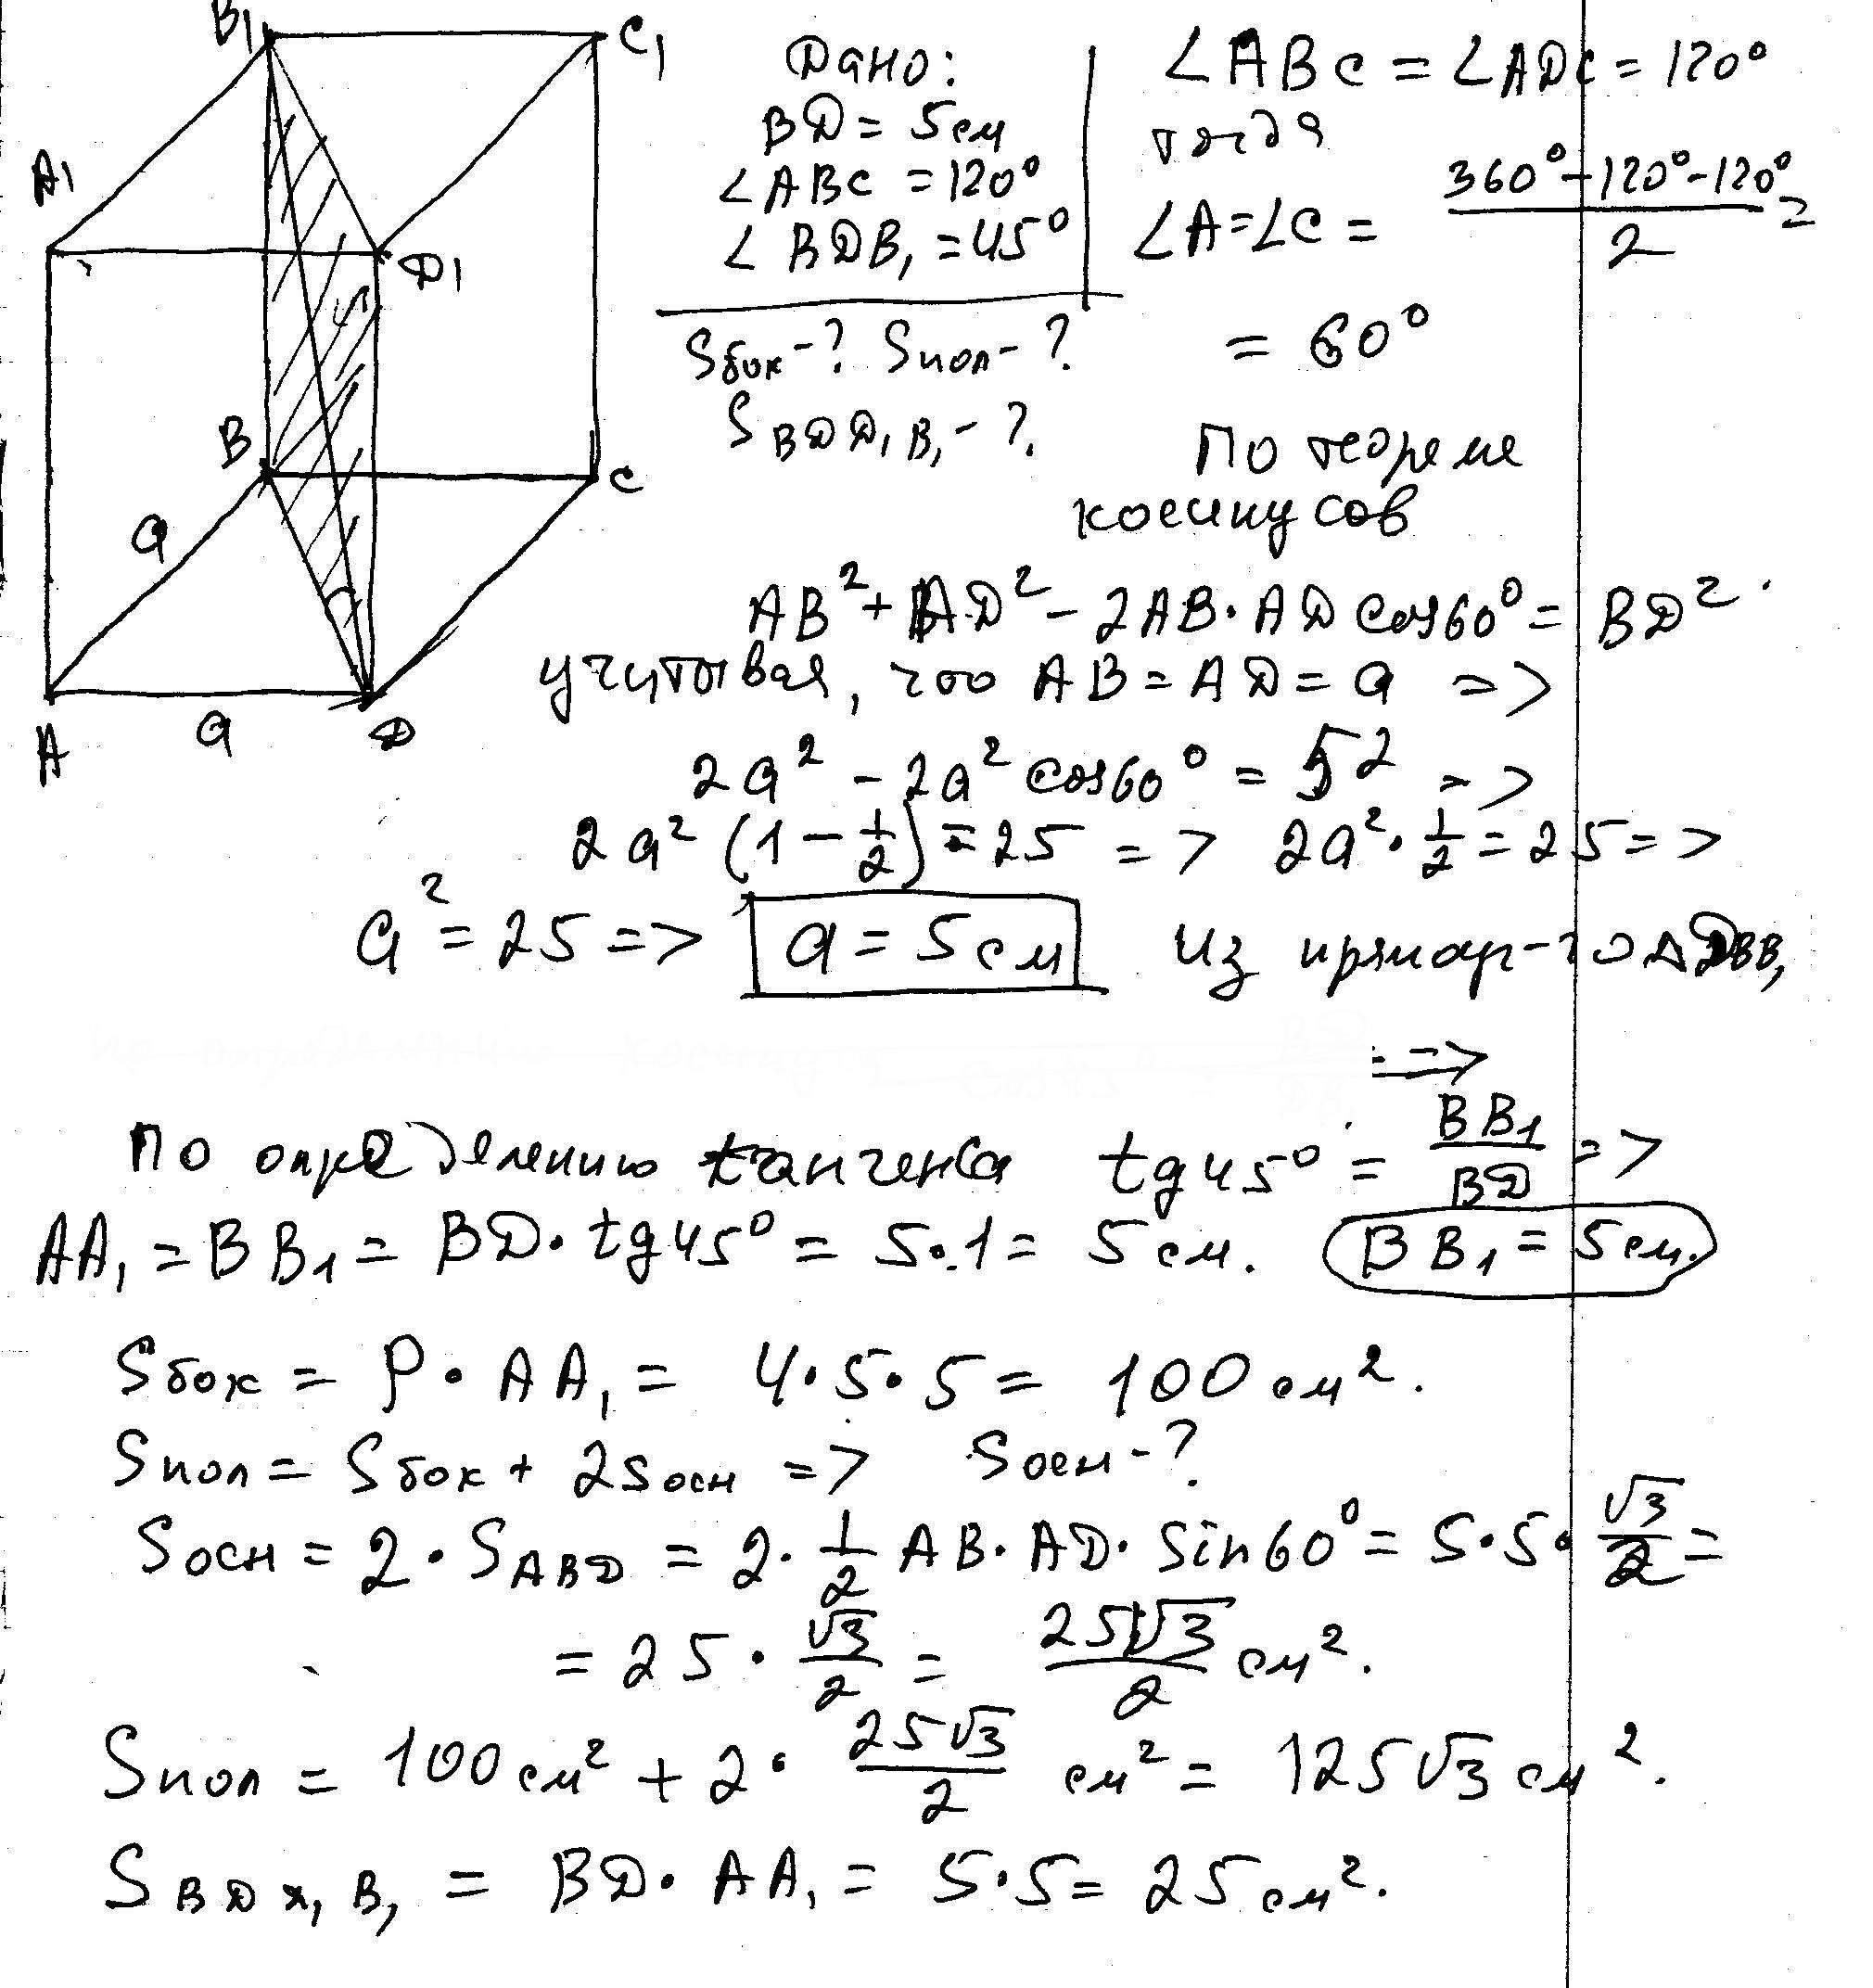 B₁
C₁
A₁
D₁
B
C
a
A
a
D
Дано:
BD = 5см
∠ABC = 120°
∠BDB₁ = 45°
Sбок-? Sпол-?
S BDD₁B₁ - ?
∠ABC = ∠ADC = 120°
тогда
∠A = ∠C = (360° - 120° - 120°)/2 =
= 60°
По теореме
косинусов
AB² + AD² - 2AB·AD cos60° = BD²
учитывая, что AB = AD = a =>
2a² - 2a² cos60° = 5² =>
2a² (1 - 1/2) = 25 => 2a² · 1/2 = 25 =>
a² = 25 => a = 5см из прямоуг-го ΔDBB₁
=>
По определению тангенса tg45° = BB₁/BD =>
AA₁ = BB₁ = BD · tg45° = 5·1 = 5см. BB₁ = 5см.
Sбок = P · AA₁ = 4·5·5 = 100см².
Sпол = Sбок + 2Sосн => Sосн-?
Sосн = 2 · S ABD = 2 · 1/2 AB · AD · sin60° = 5·5· √3/2 =
= 25 · √3/2 = 25√3/2 см².
Sпол = 100см² + 2 · 25√3/2 см² = 125√3 см².
S BDD₁B₁ = BD · AA₁ = 5·5 = 25см².